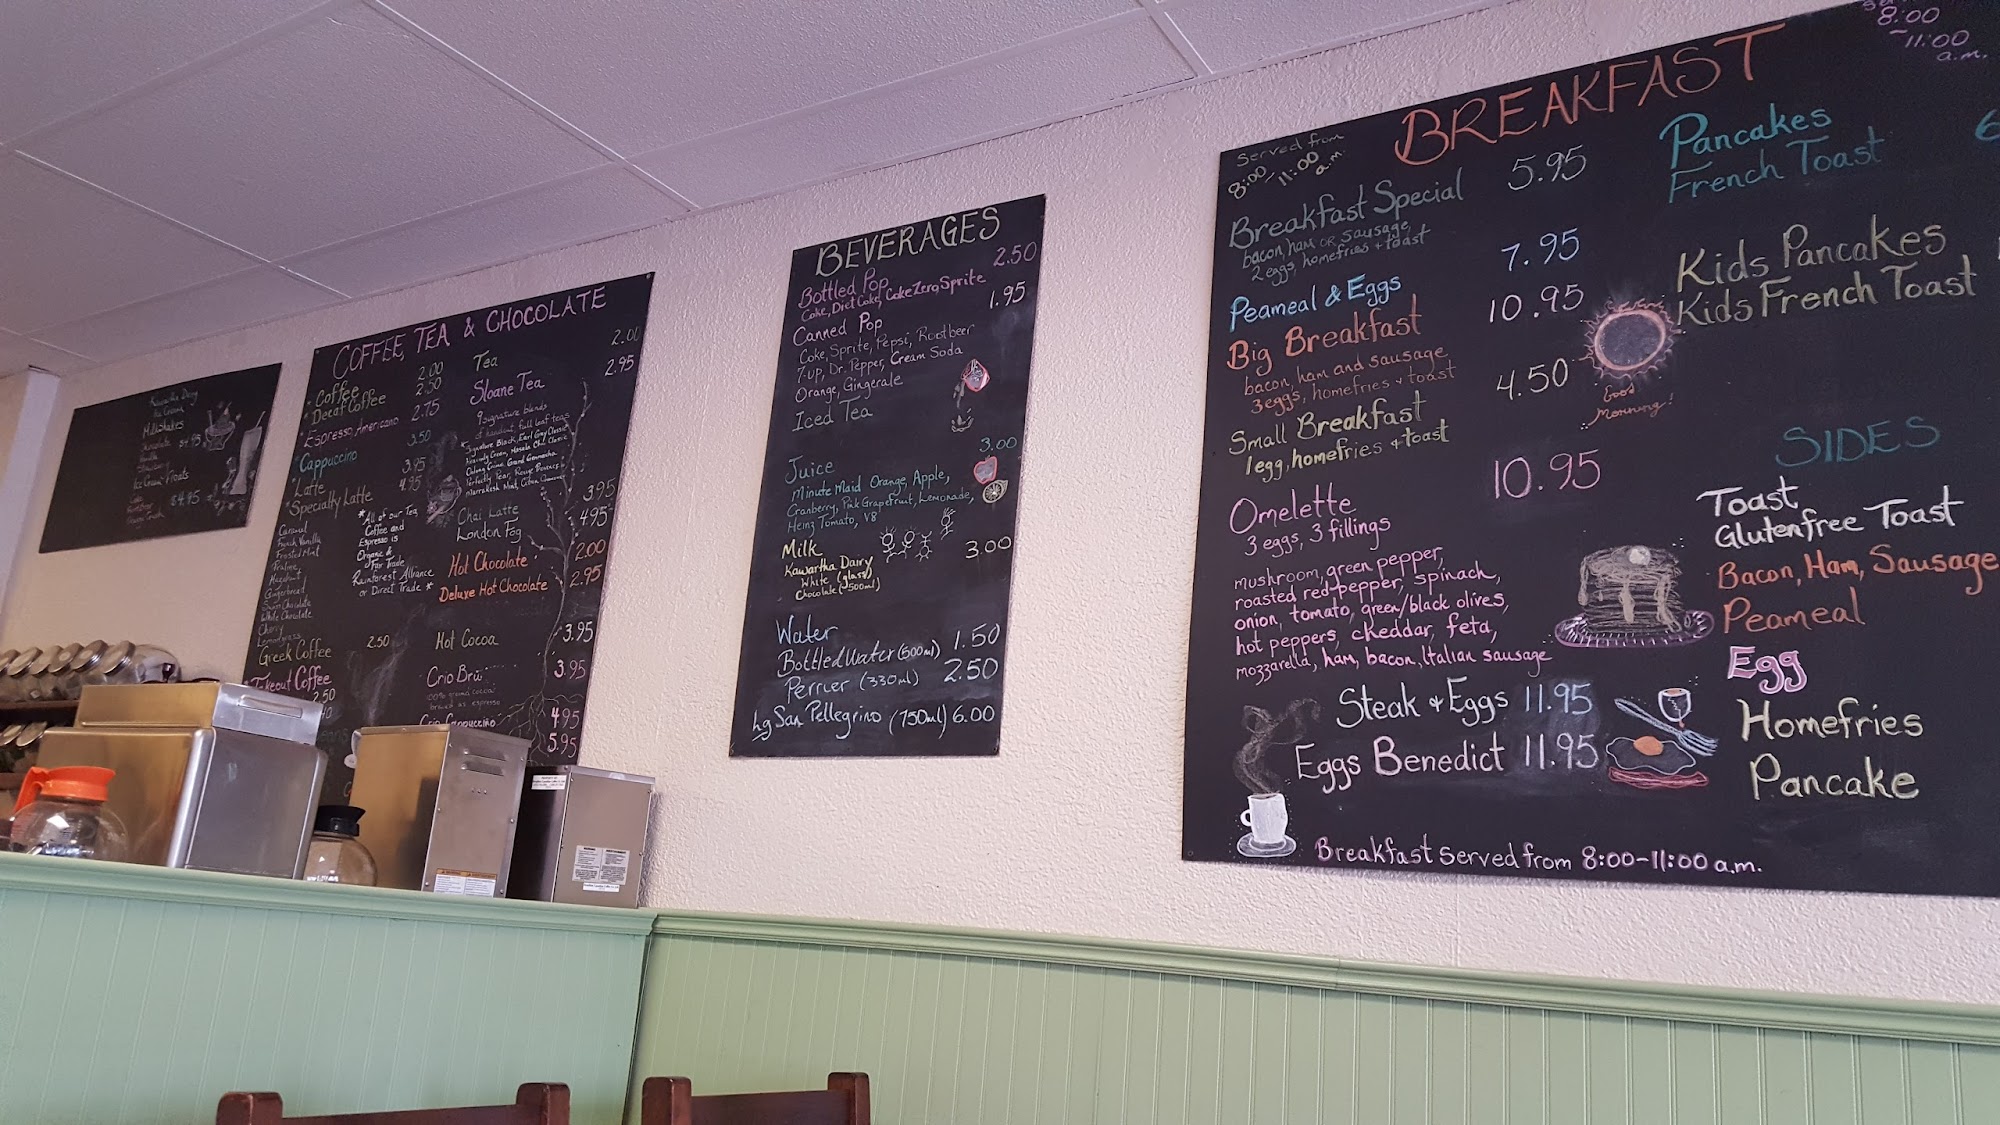 Kawartha Dairy
Ice Cream
Milkshakes
Chocolate $4.95
Vanilla
Ice Cream Floats
$4.95
COFFEE, TEA & CHOCOLATE
* Coffee 2.00
* Decaf Coffee 2.50
* Espresso, Americano 2.75
3.50
* Cappuccino
* Latte 3.95
* Specialty Latte 4.95
Caramel
French Vanilla
Frosted Mint
Praline
Hazelnut
Gingerbread
Swiss Chocolate
White Chocolate
Cherry
Greek Coffee 2.50
* Takeout Coffee
2.50
* All of our Tea,
Coffee and
Espresso is
Organic &
Fair Trade
Rainforest Alliance
or Direct Trade *
Tea 2.00
Sloane Tea 2.95
9 signature blends
of handcut, full leaf teas
* Signature Black, Earl Grey Classic
Heavenly Cream, Masala Chai Classic
Perfectly Pear, Rouge Provence
Marrakesh Mint, Citron
Chai Latte 3.95
London Fog 4.95
Hot Chocolate 2.00
Deluxe Hot Chocolate 2.95
Hot Cocoa 3.95
Crio Brü 3.95
100% ground cocoa
brewed as espresso
Crio Cappuccino 4.95
5.95
BEVERAGES
Bottled Pop 2.50
Coke, Diet Coke, Coke Zero, Sprite
Canned Pop 1.95
Coke, Sprite, Pepsi, Rootbeer
7-up, Dr. Pepper, Cream Soda
Orange, Gingerale
Iced Tea
Juice 3.00
Minute Maid Orange, Apple,
Cranberry, Pink Grapefruit, Lemonade,
Heinz Tomato, V8
Milk 3.00
Kawartha Dairy
White (glass)
Chocolate (500ml)
Water
Bottled Water (500ml) 1.50
Perrier (330ml) 2.50
lrg San Pellegrino (750ml) 6.00
BREAKFAST
Served from
8:00-11:00
a.m.
8:00
~11:00
a.m.
Breakfast Special 5.95
bacon, ham OR sausage,
2 eggs, homefries + toast
Peameal & Eggs 7.95
Big Breakfast 10.95
bacon, ham and sausage
3 eggs, homefries + toast
Small Breakfast 4.50
1 egg, homefries + toast
Omelette 10.95
3 eggs, 3 fillings
mushroom, green pepper,
roasted red pepper, spinach,
onion, tomato, green/black olives,
hot peppers, cheddar, feta,
mozzarella, ham, bacon, Italian sausage
Steak + Eggs 11.95
Eggs Benedict 11.95
Good
Morning!
Pancakes
French Toast
Kids Pancakes
Kids French Toast
SIDES
Toast
Glutenfree Toast
Bacon, Ham, Sausage
Peameal
Egg
Homefries
Pancake
Breakfast served from 8:00-11:00 a.m.